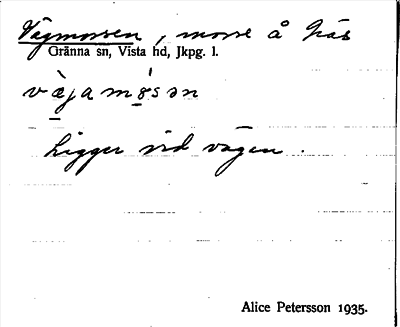 Vägmossen, mosse å Näs
Gränna sn, Vista hd, Jkpg. l.
væ̀jamɔ́sən
Ligger vid vägen.
Alice Petersson 1935.